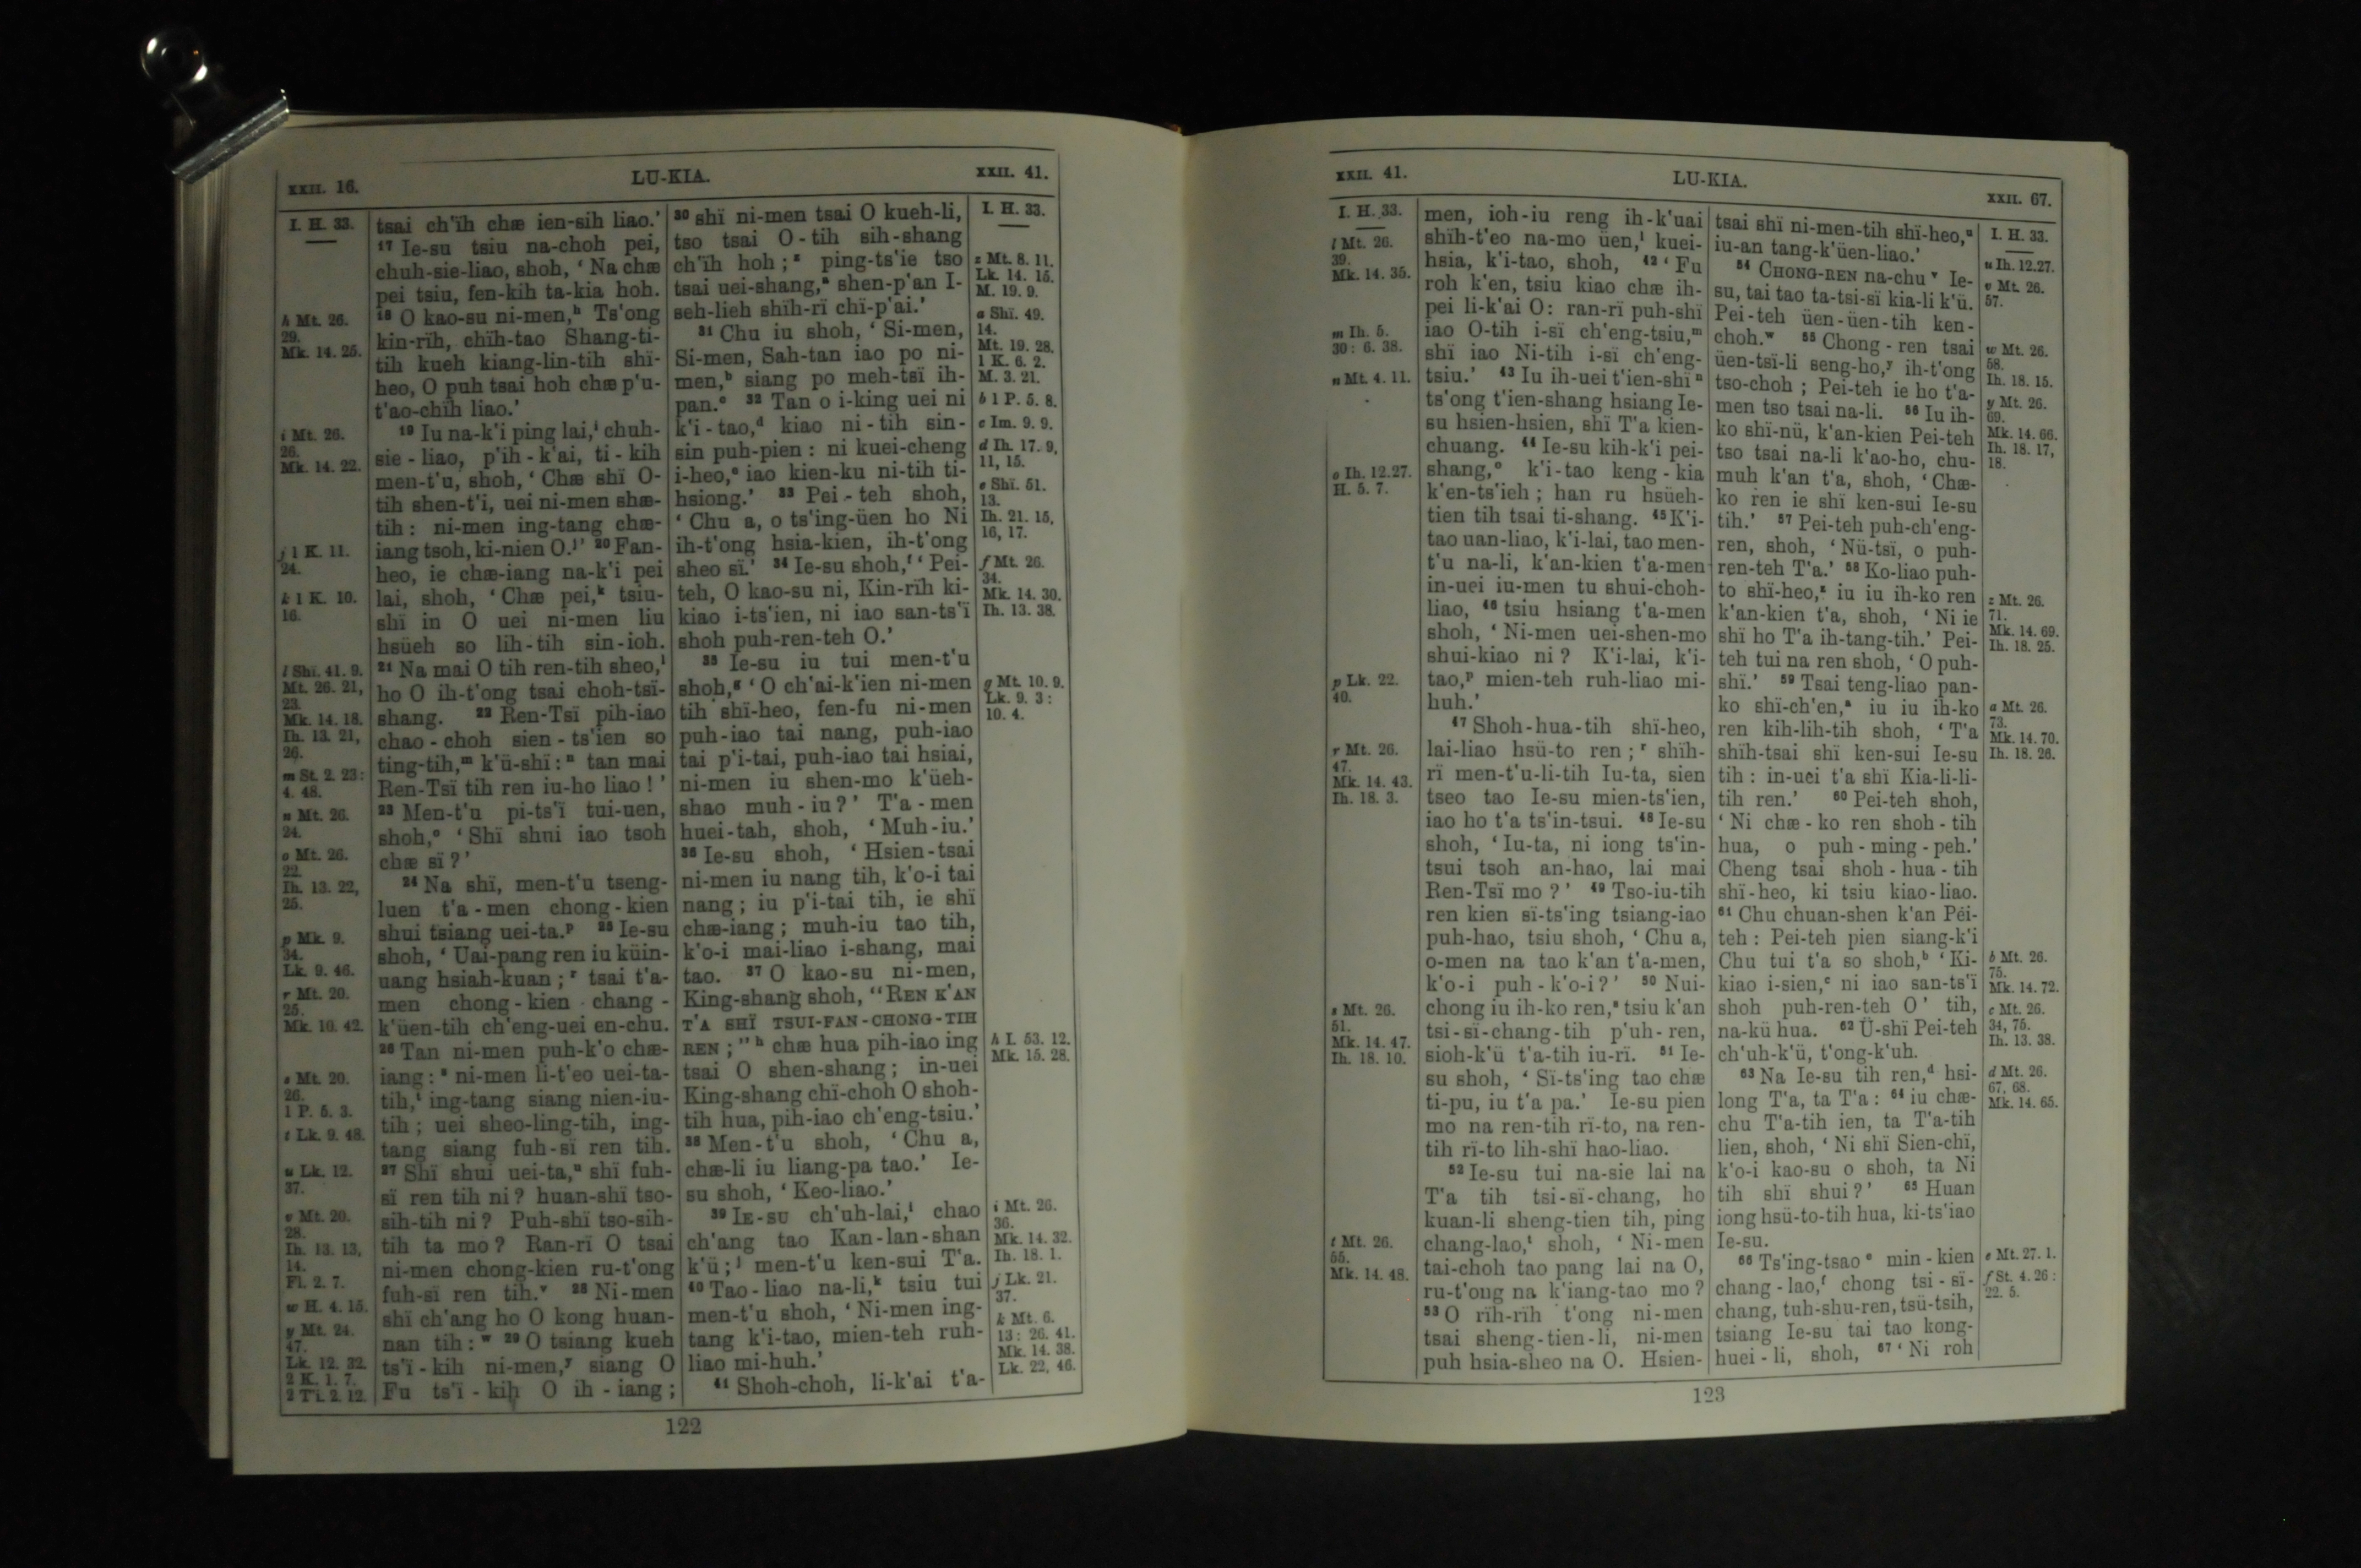 XXII. 16.
LU-KIA.
XXII. 41.
I. H. 33.
h Mt. 26.
29.
Mk. 14. 25.
i Mt. 26.
26.
Mk. 14. 22.
j 1 K. 11.
24.
k 1 K. 10.
16.
l Shï. 41. 9.
Mt. 26. 21,
23.
Mk. 14. 18.
Ih. 13. 21,
26.
m St. 2. 23:
4. 48.
n Mt. 26.
24.
o Mt. 26.
22.
Ih. 13. 22,
25.
p Mk. 9.
34.
Lk. 9. 46.
r Mt. 20.
25.
Mk. 10. 42.
s Mt. 20.
26.
1 P. 5. 3.
t Lk. 9. 48.
u Lk. 12.
37.
v Mt. 20.
28.
Ih. 13. 13,
14.
Fl. 2. 7.
w H. 4. 15.
y Mt. 24.
47.
Lk. 12. 32.
2 K. 1. 7.
2 Ti. 2. 12.
tsai ch'ïh chæ ien-sih liao.'
17 Ie-su tsiu na-choh pei,
chuh-sie-liao, shoh, ‘ Na chæ
pei tsiu, fen-kih ta-kia hoh.
18 O kao-su ni-men,h Ts'ong
kin-rïh, chïh-tao Shang-ti-
tih kueh kiang-lin-tih shï-
heo, O puh tsai hoh chæ p'u-
t'ao-chïh liao.'
19 Iu na-k'i ping lai,i chuh-
sie - liao, p'ih - k'ai, ti - kih
men-t'u, shoh, ‘ Chæ shï O-
tih shen-t'i, uei ni-men shæ-
tih : ni-men ing-tang chæ-
iang tsoh, ki-nien O.j’ 20 Fan-
heo, ie chæ-iang na-k'i pei
lai, shoh, ‘ Chæ pei,k tsiu-
shï in O uei ni-men liu
hsüeh so lih-tih sin-ioh.
21 Na mai O tih ren-tih sheo,l
ho O ih-t'ong tsai choh-tsï-
shang. 22 Ren-Tsï pih-iao
chao - choh sien - ts'ien so
ting-tih,m k'ü-shï : n tan mai
Ren-Tsï tih ren iu-ho liao ! ’
23 Men-t'u pi-ts'ï tui-uen,
shoh,o ‘ Shï shui iao tsoh
chæ sï ? ’
24 Na shï, men-t'u tseng-
luen t'a - men chong - kien
shui tsiang uei-ta.p 25 Ie-su
shoh, ‘ Uai-pang ren iu küin-
uang hsiah-kuan ; r tsai t'a-
men chong - kien chang -
k'üen-tih ch'eng-uei en-chu.
26 Tan ni-men puh-k'o chæ-
iang : s ni-men li-t'eo uei-ta-
tih,t ing-tang siang nien-iu-
tih ; uei sheo-ling-tih, ing-
tang siang fuh-sï ren tih.
27 Shï shui uei-ta,u shï fuh-
sï ren tih ni ? huan-shï tso-
sih-tih ni ? Puh-shï tso-sih-
tih ta mo ? Ran-rï O tsai
ni-men chong-kien ru-t'ong
fuh-sï ren tih.v 28 Ni-men
shï ch'ang ho O kong huan-
nan tih : w 29 O tsiang kueh
ts'ï - kih ni-men,y siang O
Fu ts'ï - kih O ih - iang ;
30 shï ni-men tsai O kueh-li,
tso tsai O - tih sih-shang
ch'ïh hoh ; z ping-ts'ie tso
tsai uei-shang,a shen-p'an I-
seh-lieh shïh-rï chï-p'ai.’
31 Chu iu shoh, ‘ Si-men,
Si-men, Sah-tan iao po ni-
men,b siang po meh-tsï ih-
pan.c 32 Tan o i-king uei ni
k'i - tao,d kiao ni - tih sin-
sin puh-pien : ni kuei-cheng
i-heo,e iao kien-ku ni-tih ti-
hsiong.’ 33 Pei - teh shoh,
‘ Chu a, o ts'ing-üen ho Ni
ih-t'ong hsia-kien, ih-t'ong
sheo sï.’ 34 Ie-su shoh,f ‘ Pei-
teh, O kao-su ni, Kin-rïh ki-
kiao i-ts'ien, ni iao san-ts'ï
shoh puh-ren-teh O.’
35 Ie-su iu tui men-t'u
shoh,g ‘ O ch'ai-k'ien ni-men
tih shï-heo, fen-fu ni-men
puh-iao tai nang, puh-iao
tai p'i-tai, puh-iao tai hsiai,
ni-men iu shen-mo k'üeh-
shao muh - iu ? ’ T'a - men
huei-tah, shoh, ‘ Muh-iu.’
36 Ie-su shoh, ‘ Hsien-tsai
ni-men iu nang tih, k'o-i tai
nang ; iu p'i-tai tih, ie shï
chæ-iang ; muh-iu tao tih,
k'o-i mai-liao i-shang, mai
tao. 37 O kao-su ni-men,
King-shang shoh, “ REN K'AN
T'A SHÏ TSUI-FAN-CHONG-TIH
REN ; ” h chæ hua pih-iao ing
tsai O shen-shang ; in-uei
King-shang chï-choh O shoh-
tih hua, pih-iao ch'eng-tsiu.’
38 Men-t'u shoh, ‘ Chu a,
chæ-li iu liang-pa tao.’ Ie-
su shoh, ‘ Keo-liao.’
39 IE-SU ch'uh-lai,i chao
ch'ang tao Kan-lan-shan
k'ü ; j men-t'u ken-sui T'a.
40 Tao - liao na-li,k tsiu tui
men-t'u shoh, ‘ Ni-men ing-
tang k'i-tao, mien-teh ruh-
liao mi-huh.’
41 Shoh-choh, li-k'ai t'a-
I. H. 33.
z Mt. 8. 11.
Lk. 14. 15.
M. 19. 9.
a Shï. 49.
14.
Mt. 19. 28.
1 K. 6. 2.
M. 3. 21.
b 1 P. 5. 8.
c Im. 9. 9.
d Ih. 17. 9,
11, 15.
e Shï. 51.
13.
Ih. 21. 15,
16, 17.
f Mt. 26.
34.
Mk. 14. 30.
Ih. 13. 38.
g Mt. 10. 9.
Lk. 9. 3 :
10. 4.
h I. 53. 12.
Mk. 15. 28.
i Mt. 26.
36.
Mk. 14. 32.
Ih. 18. 1.
j Lk. 21.
37.
k Mt. 6.
13 : 26. 41.
Mk. 14. 38.
Lk. 22. 46.
122
XXII. 41.
LU-KIA.
XXII. 67.
I. H. 33.
l Mt. 26.
39.
Mk. 14. 35.
m Ih. 5.
30 : 6. 38.
n Mt. 4. 11.
o Ih. 12. 27.
H. 5. 7.
p Lk. 22.
40.
r Mt. 26.
47.
Mk. 14. 43.
Ih. 18. 3.
s Mt. 26.
51.
Mk. 14. 47.
Ih. 18. 10.
t Mt. 26.
55.
Mk. 14. 48.
men, ioh-iu reng ih-k'uai
shïh-t'eo na-mo üen,l kuei-
hsia, k'i-tao, shoh, 42 ‘ Fu
roh k'en, tsiu kiao chæ ih-
pei li-k'ai O : ran-rï puh-shï
iao O-tih i-sï ch'eng-tsiu,m
shï iao Ni-tih i-sï ch'eng-
tsiu.’ 43 Iu ih-uei t'ien-shï n
ts'ong t'ien-shang hsiang Ie-
su hsien-hsien, shï T'a kien-
chuang. 44 Ie-su kih-k'i pei-
shang,o k'i-tao keng - kia
k'en-ts'ieh ; han ru hsüeh-
tien tih tsai ti-shang. 45 K'i-
tao uan-liao, k'i-lai, tao men-
t'u na-li, k'an-kien t'a-men
in-uei iu-men tu shui-choh-
liao, 46 tsiu hsiang t'a-men
shoh, ‘ Ni-men uei-shen-mo
shui-kiao ni ? K'i-lai, k'i-
tao,p mien-teh ruh-liao mi-
huh.’
47 Shoh-hua-tih shï-heo,
lai-liao hsü-to ren ; r shïh-
rï men-t'u-li-tih Iu-ta, sien
tseo tao Ie-su mien-ts'ien,
iao ho t'a ts'in-tsui. 48 Ie-su
shoh, ‘ Iu-ta, ni iong ts'in-
tsui tsoh an-hao, lai mai
Ren-Tsï mo ? ’ 49 Tso-iu-tih
ren kien sï-ts'ing tsiang-iao
puh-hao, tsiu shoh, ‘ Chu a,
o-men na tao k'an t'a-men,
k'o-i puh - k'o-i ? ’ 50 Nui-
chong iu ih-ko ren,s tsiu k'an
tsi-sï-chang-tih p'uh-ren,
sioh-k'ü t'a-tih iu-rï. 51 Ie-
su shoh, ‘ Sï-ts'ing tao chæ
ti-pu, iu t'a pa.’ Ie-su pien
mo na ren-tih rï-to, na ren-
tih rï-to lih-shï hao-liao.
52 Ie-su tui na-sie lai na
T'a tih tsi-sï-chang, ho
kuan-li sheng-tien tih, ping
chang-lao,t shoh, ‘ Ni-men
tai-choh tao pang lai na O,
ru-t'ong na k'iang-tao mo ?
53 O rïh-rïh t'ong ni-men
tsai sheng-tien-li, ni-men
puh hsia-sheo na O. Hsien-
tsai shï ni-men-tih shï-heo,u
iu-an tang-k'üen-liao.’
54 CHONG-REN na-chu v Ie-
su, tai tao ta-tsi-sï kia-li k'ü.
Pei-teh üen-üen-tih ken-
choh.w 55 Chong - ren tsai
üen-tsï-li seng-ho,y ih-t'ong
tso-choh ; Pei-teh ie ho t'a-
men tso tsai na-li. 56 Iu ih-
ko shï-nü, k'an-kien Pei-teh
tso tsai na-li k'ao-ho, chu-
muh k'an t'a, shoh, ‘ Chæ-
ko ren ie shï ken-sui Ie-su
tih.’ 57 Pei-teh puh-ch'eng-
ren, shoh, ‘ Nü-tsï, o puh-
ren-teh T'a.’ 58 Ko-liao puh-
to shï-heo,z iu iu ih-ko ren
k'an-kien t'a, shoh, ‘ Ni ie
shï ho T'a ih-tang-tih.’ Pei-
teh tui na ren shoh, ‘ O puh-
shï.’ 59 Tsai teng-liao pan-
ko shï-ch'en,a iu iu ih-ko
ren kih-lih-tih shoh, ‘ T'a
shïh-tsai shï ken-sui Ie-su
tih : in-uei t'a shï Kia-li-li-
tih ren.’ 60 Pei-teh shoh,
‘ Ni chæ - ko ren shoh - tih
hua, o puh - ming - peh.’
Cheng tsai shoh - hua - tih
shï-heo, ki tsiu kiao-liao.
61 Chu chuan-shen k'an Pei-
teh : Pei-teh pien siang-k'i
Chu tui t'a so shoh,b ‘ Ki-
kiao i-sien,c ni iao san-ts'ï
shoh puh-ren-teh O ’ tih,
na-kü hua. 62 Ü-shï Pei-teh
ch'uh-k'ü, t'ong-k'uh.
63 Na Ie-su tih ren,d hsi-
long T'a, ta T'a : 64 iu chæ-
chu T'a-tih ien, ta T'a-tih
lien, shoh, ‘ Ni shï Sien-chï,
k'o-i kao-su o shoh, ta Ni
tih shï shui ? ’ 65 Huan
iong hsü-to-tih hua, ki-ts'iao
Ie-su.
66 Ts'ing-tsao e min - kien
chang - lao,f chong tsi - sï-
chang, tuh-shu-ren, tsü-tsih,
tsiang Ie-su tai tao kong-
huei - li, shoh, 67 ‘ Ni roh
I. H. 33.
u Ih. 12. 27.
v Mt. 26.
57.
w Mt. 26.
58.
Ih. 18. 15.
y Mt. 26.
69.
Mk. 14. 66.
Ih. 18. 17,
18.
z Mt. 26.
71.
Mk. 14. 69.
Ih. 18. 25.
a Mt. 26.
73.
Mk. 14. 70.
Ih. 18. 26.
b Mt. 26.
75.
Mk. 14. 72.
c Mt. 26.
34, 75.
Ih. 13. 38.
d Mt. 26.
67, 68.
Mk. 14. 65.
e Mt. 27. 1.
f St. 4. 26 :
22. 5.
123